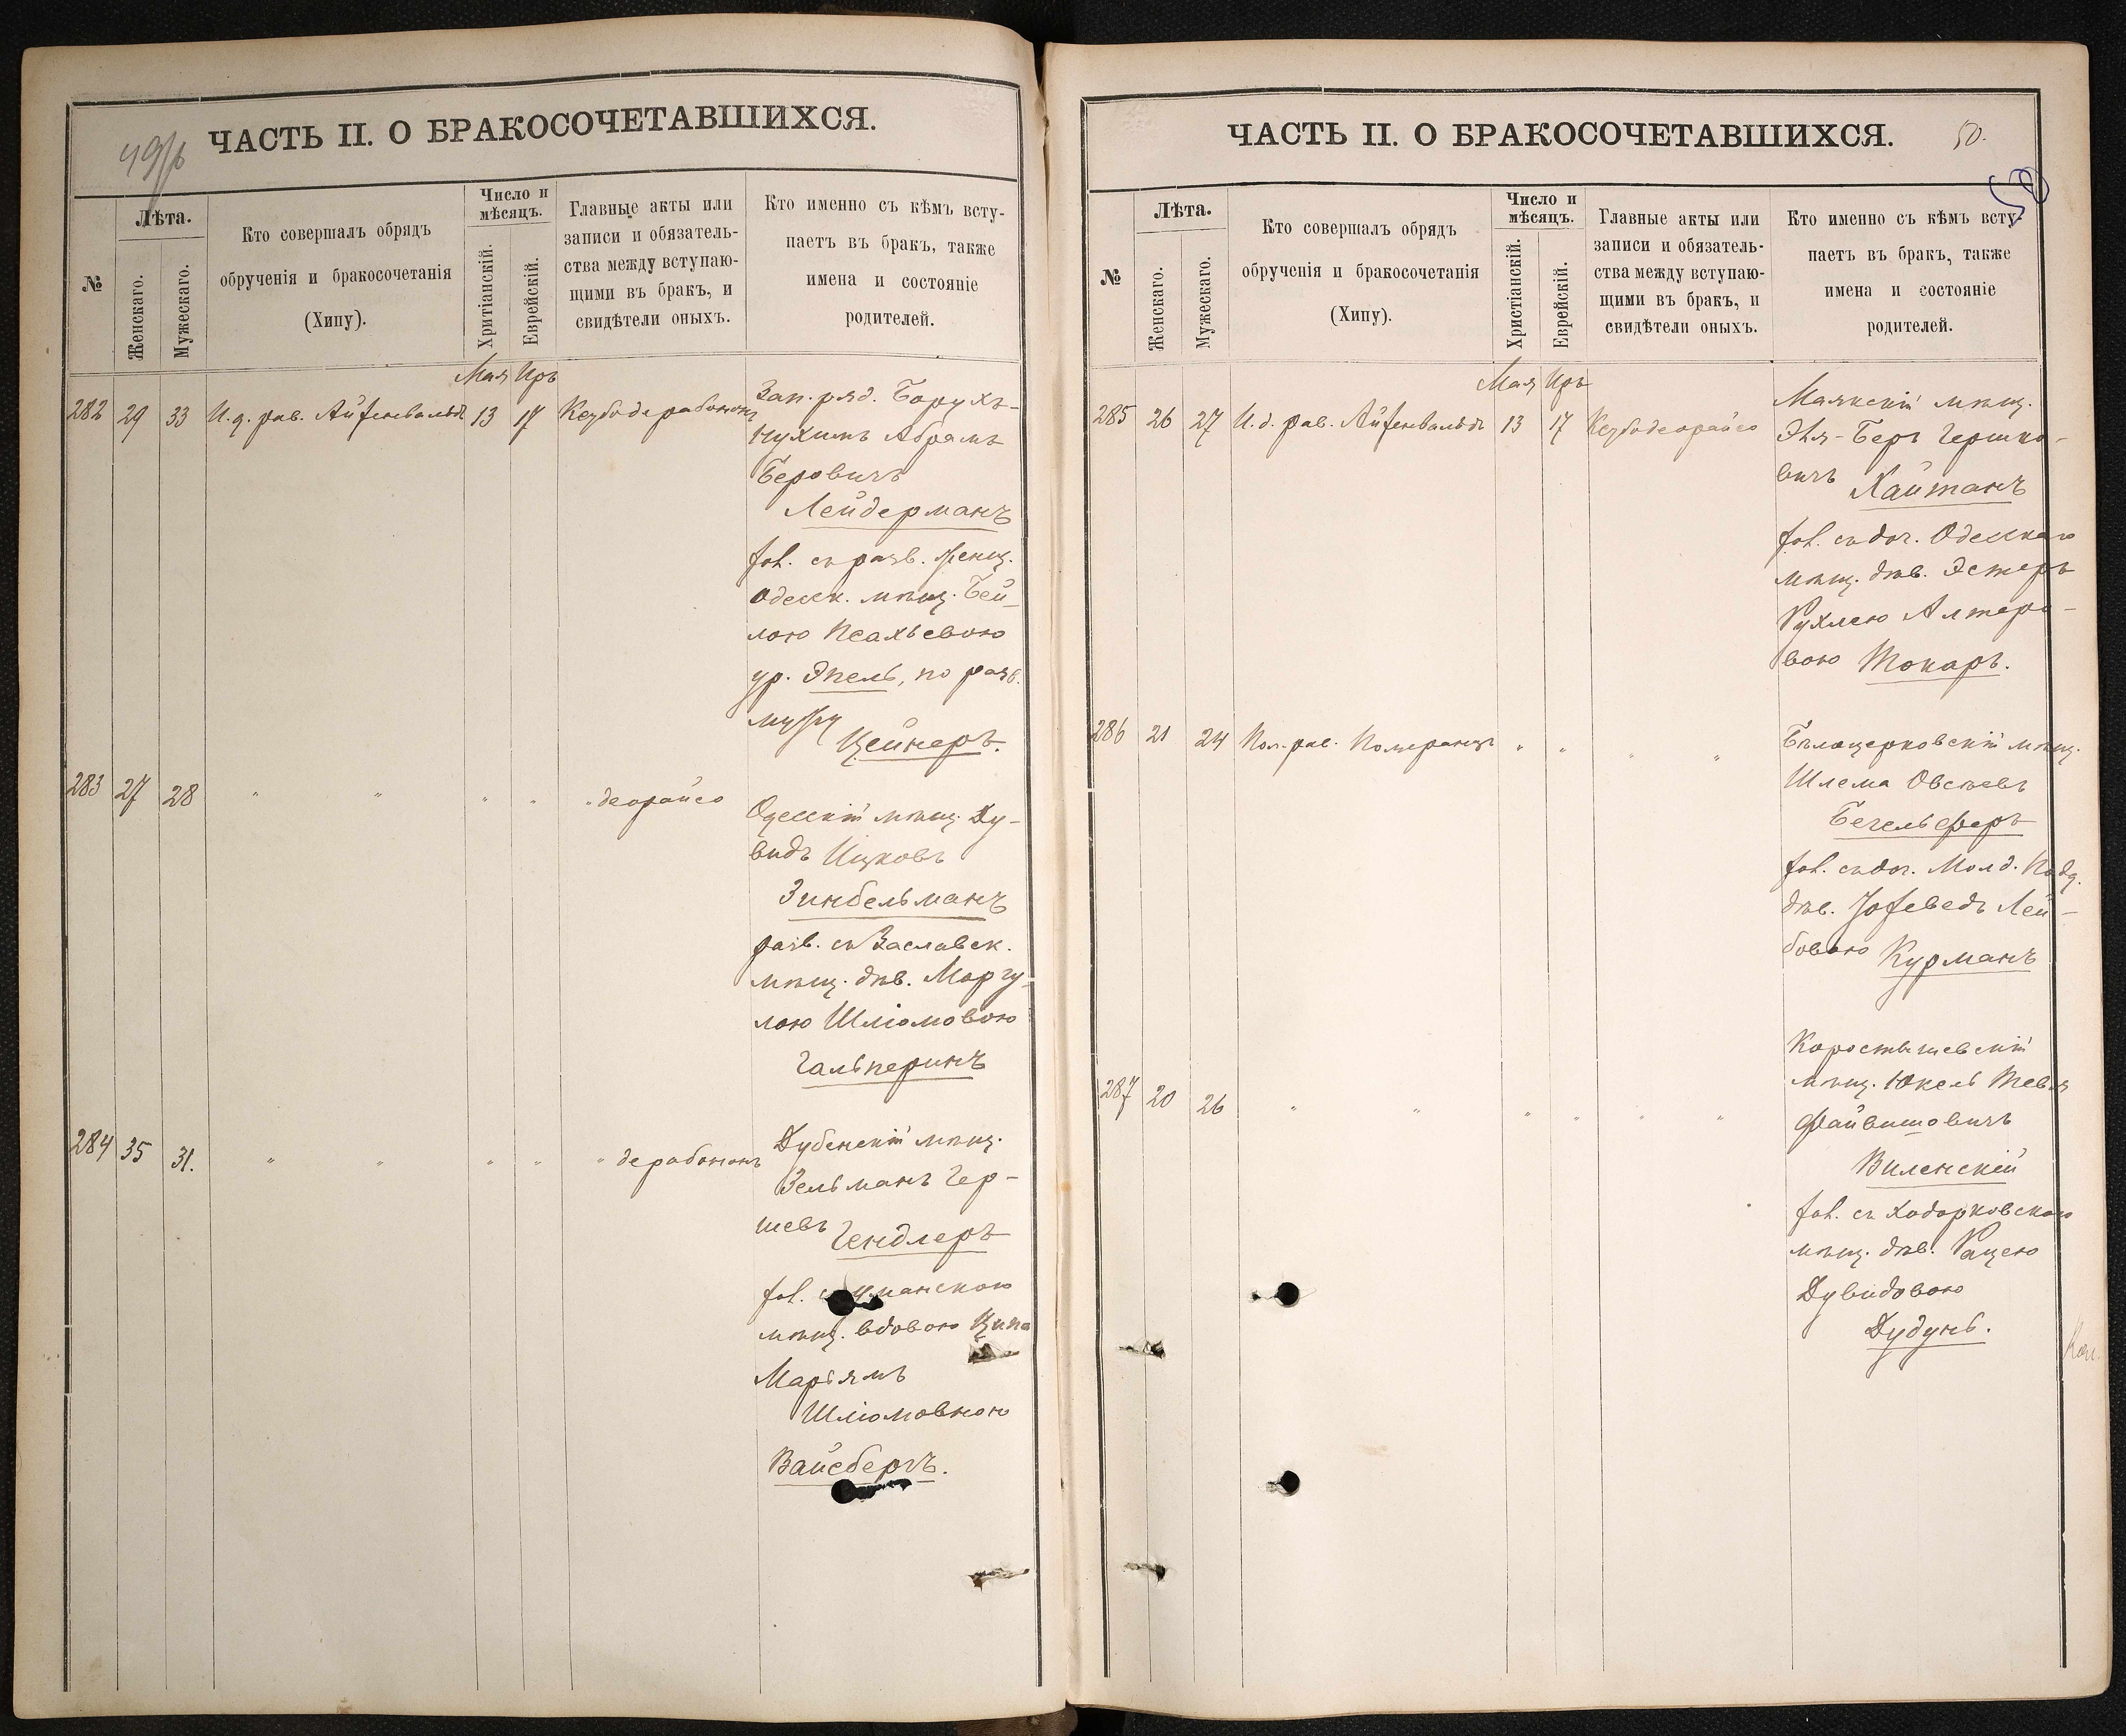 49/б
ЧАСТЬ II. О БРАКОСОЧЕТАВШИХСЯ.
№
Лѣта.
Женскаго.
Мужескаго.
Кто совершалъ обрядъ
обрученія и бракосочетанія
(Хипу).
Число и
мѣсяцъ.
Хритіанскій.
Еврейскій.
Главные акты или
записи и обязатель-
ства между вступаю-
щими въ бракъ, и
свидѣтели оныхъ.
Кто именно съ кѣмъ всту-
паетъ въ бракъ, также
имена и состояніе
родителей.
Мая Иръ
282 29 33 И. д. рав. Айзенвальдъ 13 17 Кезубодерабононъ
Зап. ряд. Борухъ-
Нухимъ Абрамъ
Беровичъ
Лейдерманъ
хол. съ разв. женщ.
Одесск. мѣщ. Бей-
лою Псахьевою
ур. Эпель, по разв.
мужу
Цейнеръ.
283 27 28 " " " " " деорайсо
Одесскій мѣщ. Ду-
видъ Ицковъ
Зинбельманъ
разв. съ Заславск.
мѣщ. дѣв. Маргу-
лою Шліомовою
Гальперинъ
284 35 31. " " " " " дерабононъ
Дубенскій мѣщ.
Зельманъ Гер-
шевъ Гендлеръ
хол. съ Уманскою
мѣщ. вдовою Ципа
Марьямъ
Шліомовною
Вайсбергъ.
ЧАСТЬ II. О БРАКОСОЧЕТАВШИХСЯ.
50.
50
№
Лѣта.
Женскаго.
Мужескаго.
Кто совершалъ обрядъ
обрученія и бракосочетанія
(Хипу).
Число и
мѣсяцъ.
Христіанскій.
Еврейскій.
Главные акты или
записи и обязатель-
ства между вступаю-
щими въ бракъ, и
свидѣтели оныхъ.
Кто именно съ кѣмъ всту-
паетъ въ бракъ, также
имена и состояніе
родителей.
Мая Иръ
285 26 27 И. д. рав. Айзенвальдъ 13 17 Кезубодеорайсо
Маякскій мѣщ.
Эля-Беръ Гершко-
вичъ Кайтанъ
хол. съ доч. Одесскаго
мѣщ. дѣв. Эстеръ
Рухлею Алтеро-
вою Токаръ.
286 21 24 Пом. рав. Померанцъ " " " "
Бѣлоцерковскій мѣщ.
Шлема Овсѣевъ
Бегельферъ
хол. съ доч. Молд. Подд.
дѣв. Іохеведъ Лей-
бовою Курманъ
287 20 26 " " " " " "
Коростышевскій
мѣщ. Юкель Тевья
Файвишовичъ
Виленскій
хол. съ Ходорковскою
мѣщ. дѣв. Рацею
Дувидовою
Дудунъ.